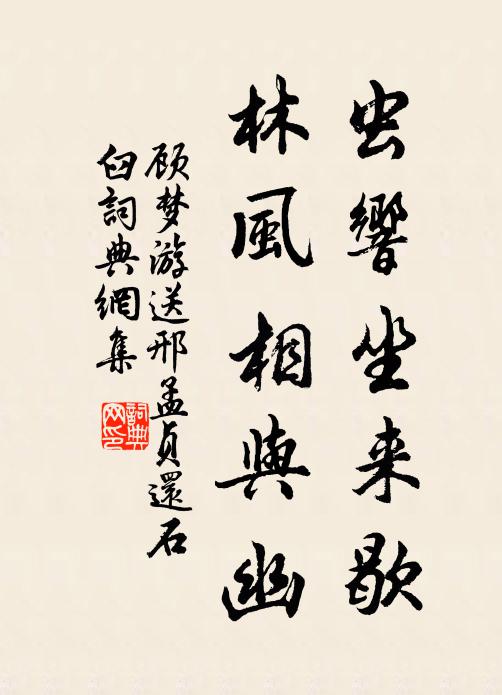 虫響坐来歇
林風相與幽
顾梦游送邢孟贞還石
臼詞典網集
詞典
网印